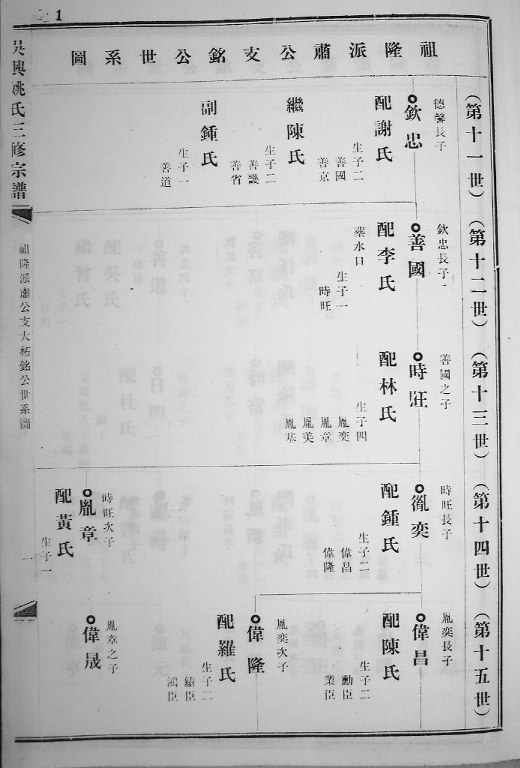 1
祖隆派肅公支銘公世系圖
吳興姚氏三修宗譜
祖隆派肅公支大柘銘公世系圖
一
(第十一世)
德馨長子
欽忠
配謝氏
生子二
善國
善京
繼陳氏
生子二
善畿
善省
副鍾氏
生子一
善道
(第十二世)
欽忠長子
善國
配李氏
蓼水口
生子一
時旺
(第十三世)
善國之子
時旺
配林氏
生子四
胤奕
胤章
胤美
(第十四世)
時旺長子
胤奕
配鍾氏
生子二
偉昌
偉隆
時旺次子
胤章
配黃氏
生子一
(第十五世)
胤奕長子
偉昌
配陳氏
生子二
勳臣
業臣
胤奕次子
偉隆
配羅氏
生子二
績臣
鴻臣
胤章之子
偉晟